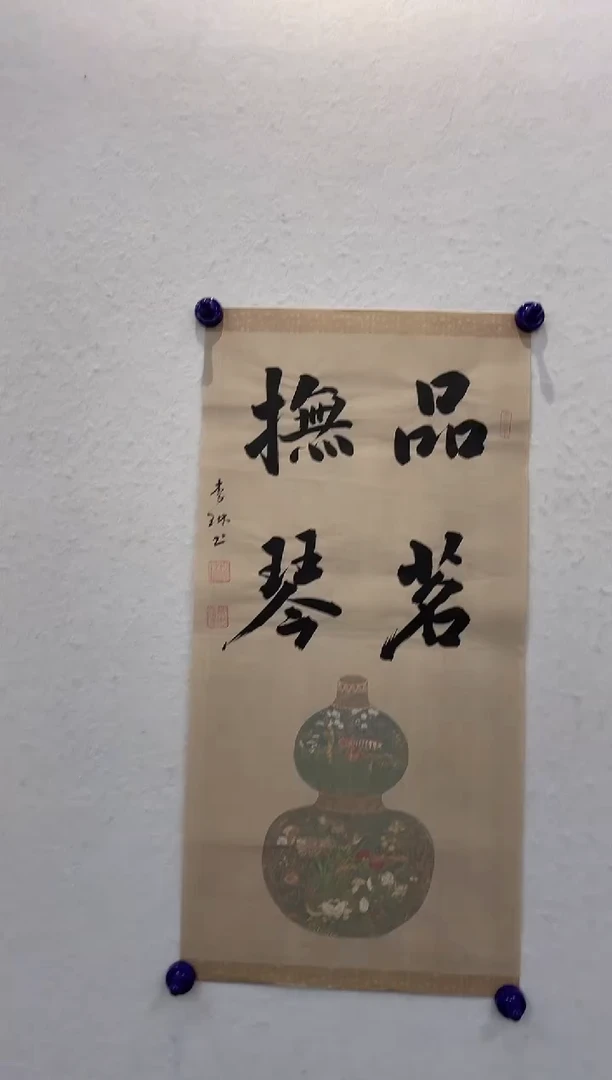 品茗
撫琴